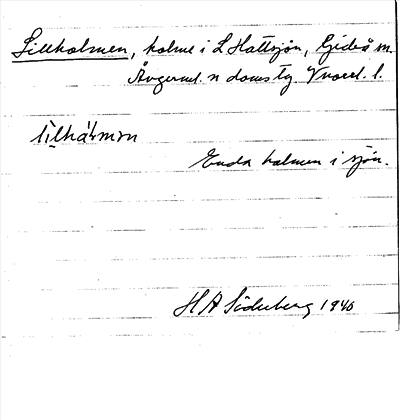 Lillholmen, holme i L Hattsjön, Gideå sn.
Ångerml. n doms tg. Vnorrl. l.
Enda holmen i sjön.
H A Söderberg 1940